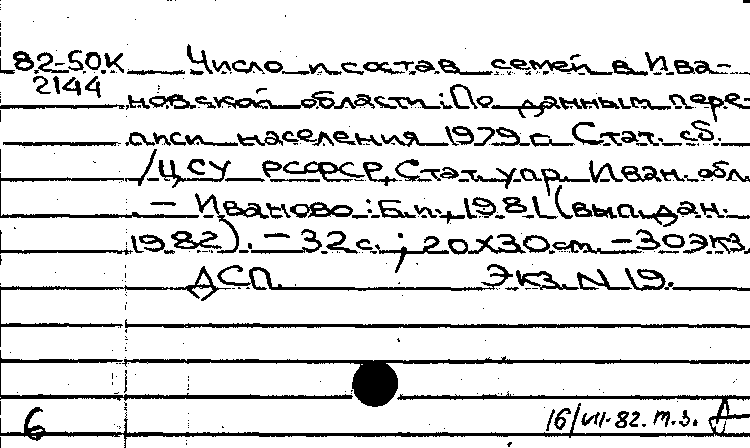 82-50К Число и состав семей в Ива-
2144 новской области: По данным пере-
писи населения 1979 г. Стат. сб.
/ЦСУ РСФСР, Стат. упр. Иван. обл.
. — Иваново: Б.и., 1981 (вып. дан.
1982). — 32 с. ; 20х30 см. — 30 экз
ДСП. Экз. N 19.
6 16/VII-82. т.з.